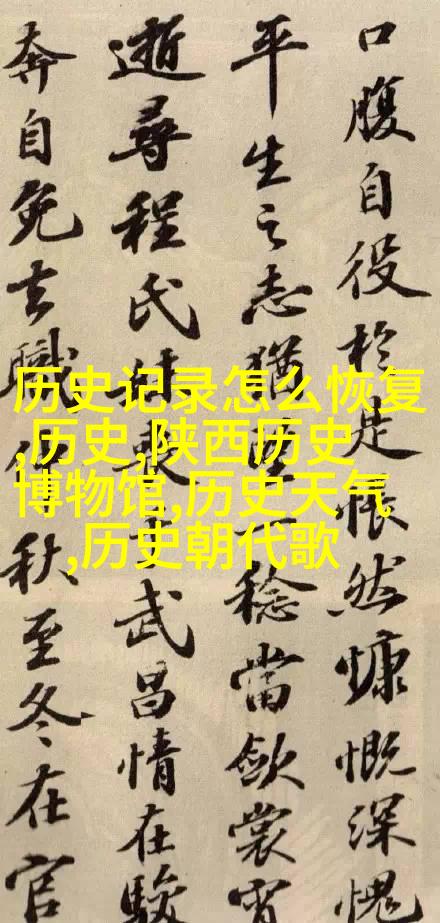 口腹自役於是悵然慷慨深愧
平生之志猶望一稔當斂裳宵
逝尋程氏妹喪于武昌情在駿
奔自免去職仲秋至冬在官
历史记录怎么恢复
,历史,陕西历史
博物馆,历史天气
,历史朝代歌